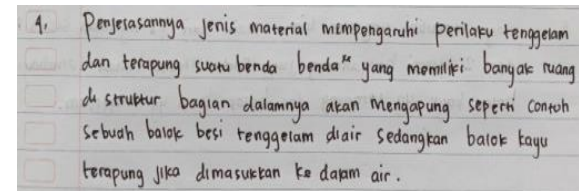 4. Penjelasannya jenis material mempengaruhi perilaku tenggelam
dan terapung suatu benda benda" yang memiliki banyak ruang
di struktur bagian dalamnya akan mengapung seperti contoh
sebuah balok besi tenggelam diair sedangkan balok kayu
terapung jika dimasukkan ke dalam air.